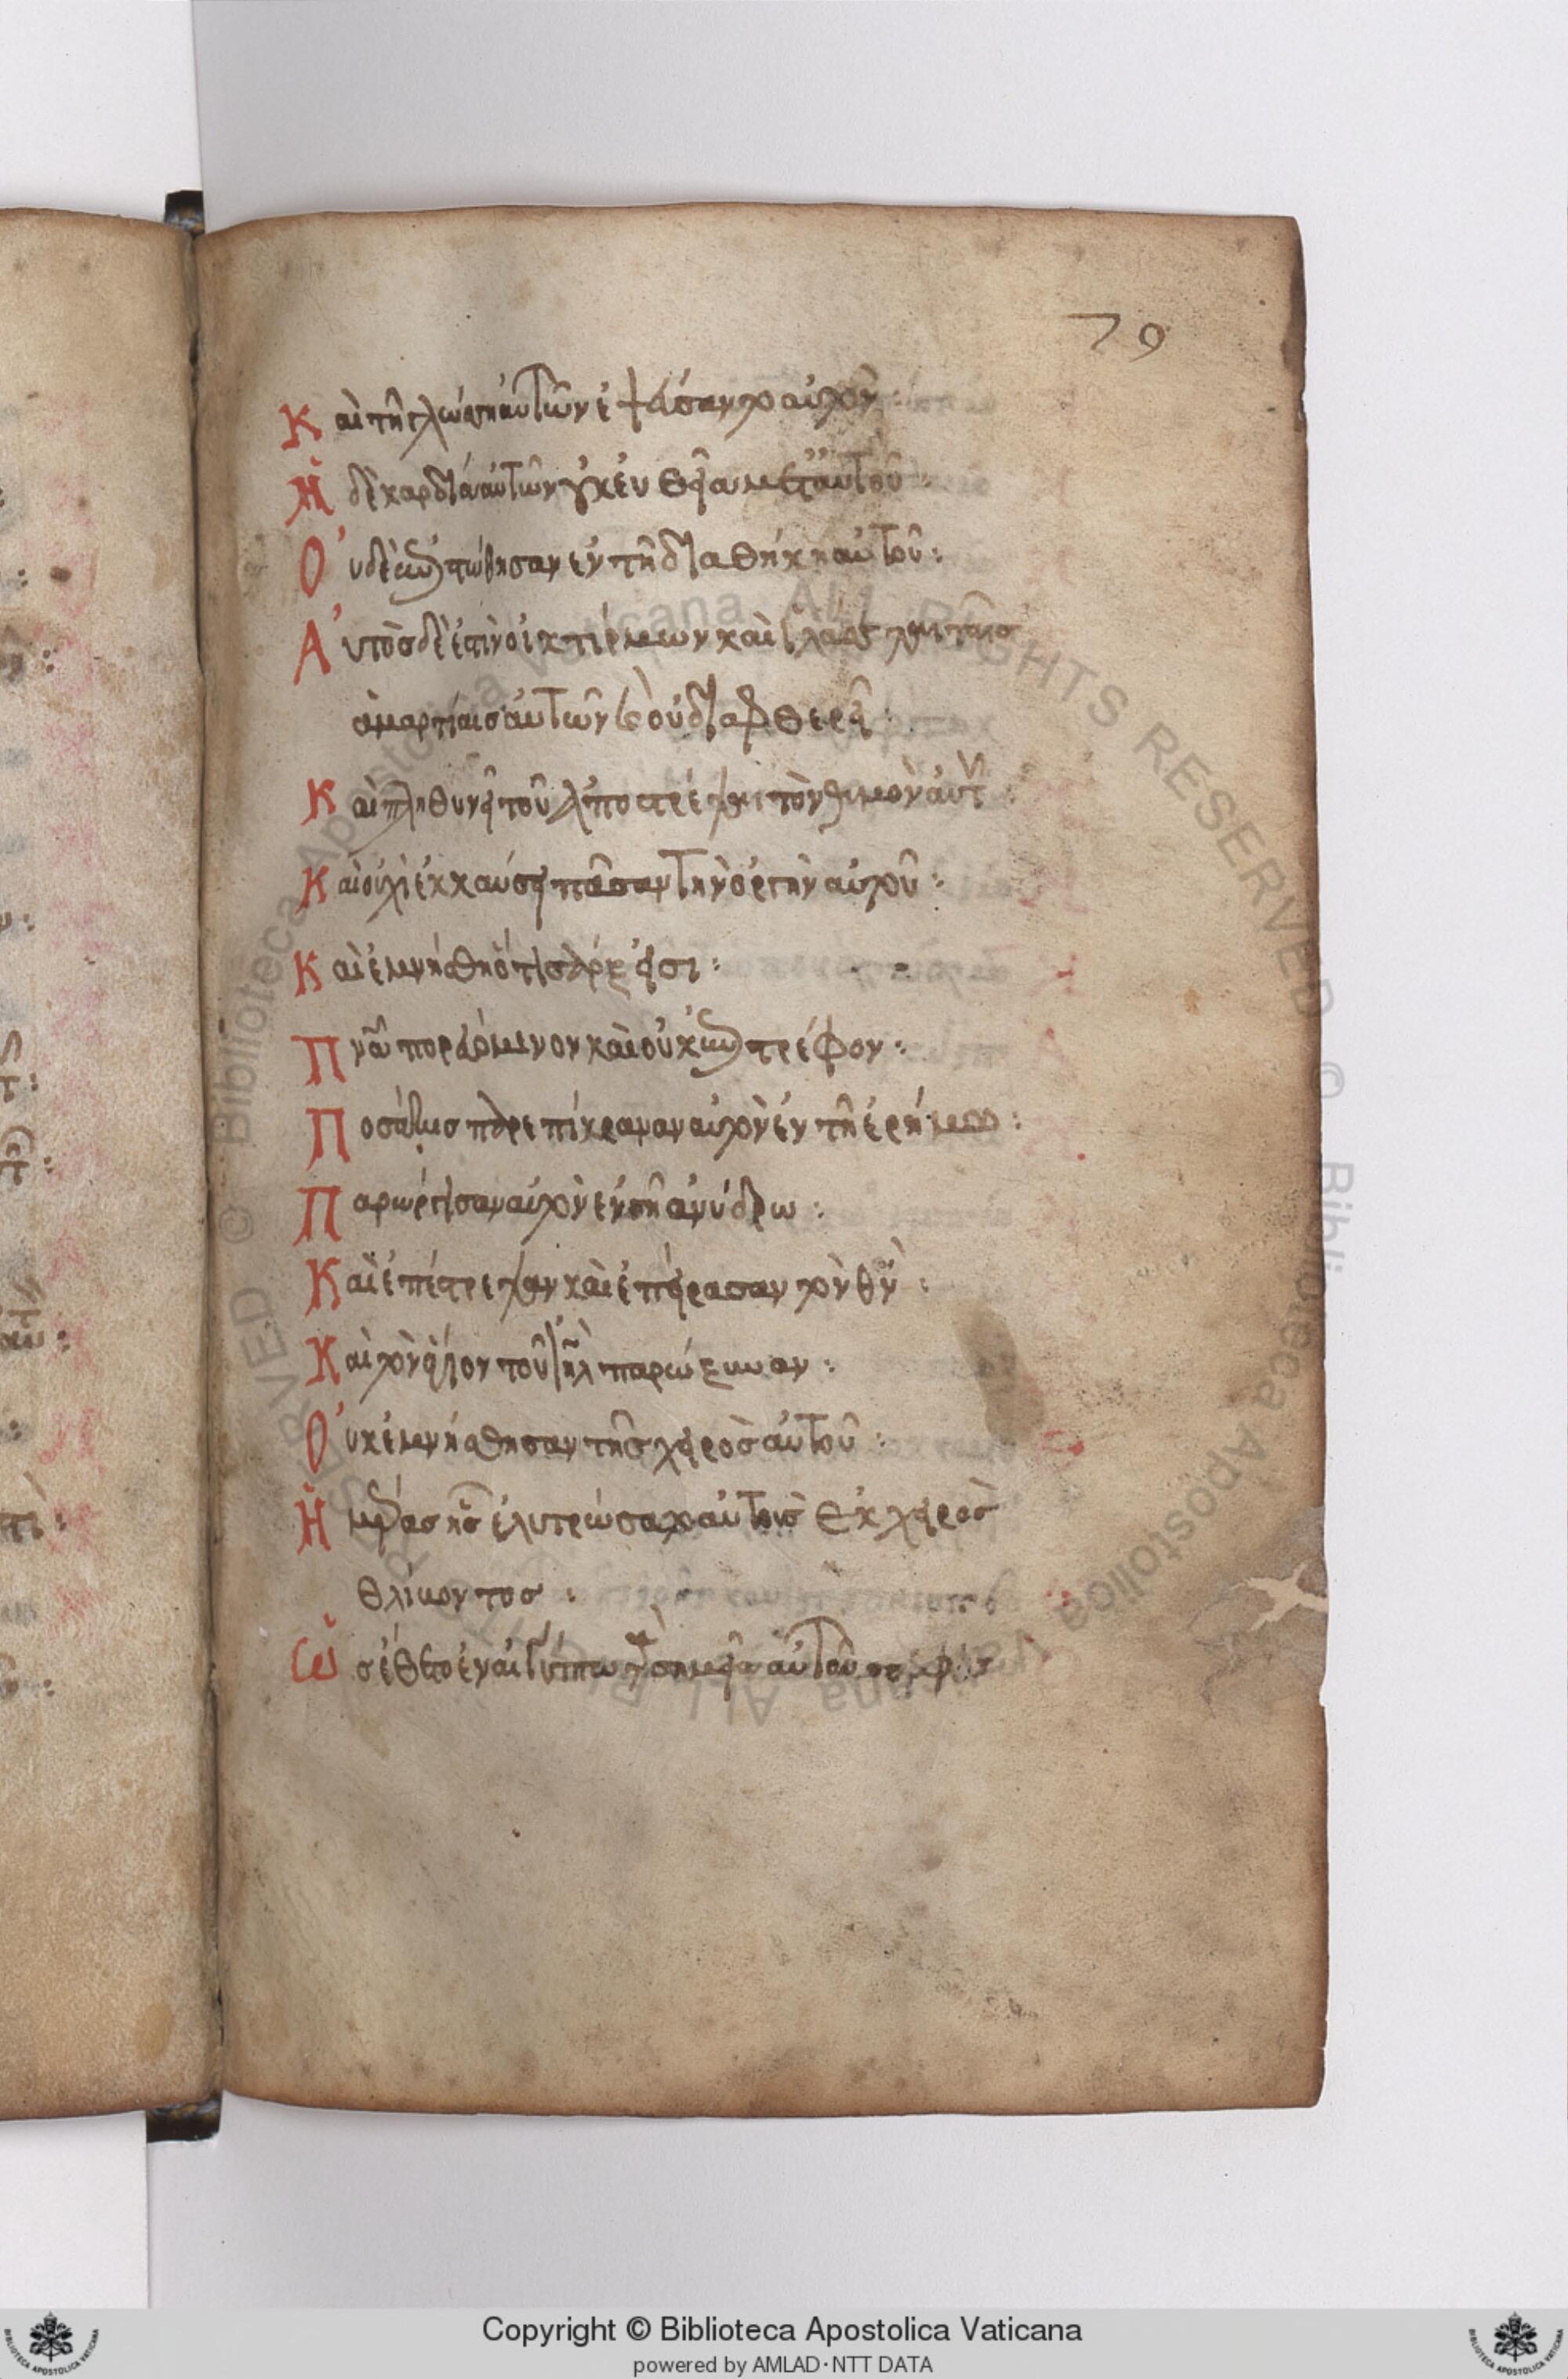 79
Καὶ τῆ γλώσση αὐτῶν ἐψεύσαντο αὐτόν:
Ἡ δὲ καρδία αὐτῶν οὐκ εὐθεῖα μετ' αὐτοῦ:
Οὐδὲ ἐπιστώθησαν ἐν τῆ διαθήκη αὐτοῦ:
Αὐτὸς δέ ἐστιν οἰκτίρμων καὶ ἱλάσεται ταῖς
ἁμαρτίαις αὐτῶν καὶ οὐ διαφθερεῖ:
Καὶ πληθυνεῖ τοῦ ἀποστρέψαι τὸν θυμὸν αὐτοῦ:
Καὶ οὐχὶ ἐκκαύσει πᾶσαν τὴν ὀργὴν αὐτοῦ:
Καὶ ἐμνήσθη ὅτι σάρξ εἰσι:
Πνᾶ πορευόμενον καὶ οὐκ ἐπιστρέφον:
Ποσάκις παρεπίκραναν αὐτὸν ἐν τῆ ἐρήμω:
Παρώργισαν αὐτὸν ἐν γῆ ἀνύδρω:
Καὶ ἐπέστρεψαν καὶ ἐπείρασαν τὸν θν:
Καὶ τὸν ἅγιον τοῦ ιηλ παρώξυναν:
Οὐκ ἐμνήσθησαν τῆς χειρὸς αὐτοῦ:
Ἡμέρας ἧς ἐλυτρώσατο αὐτοὺς ἐκ χειρὸς
θλίβοντος:
Ὡς ἔθετο ἐν αἰγύπτω τὰ σημεῖα αὐτοῦ
Copyright © Biblioteca Apostolica Vaticana
powered by AMLAD·NTT DATA